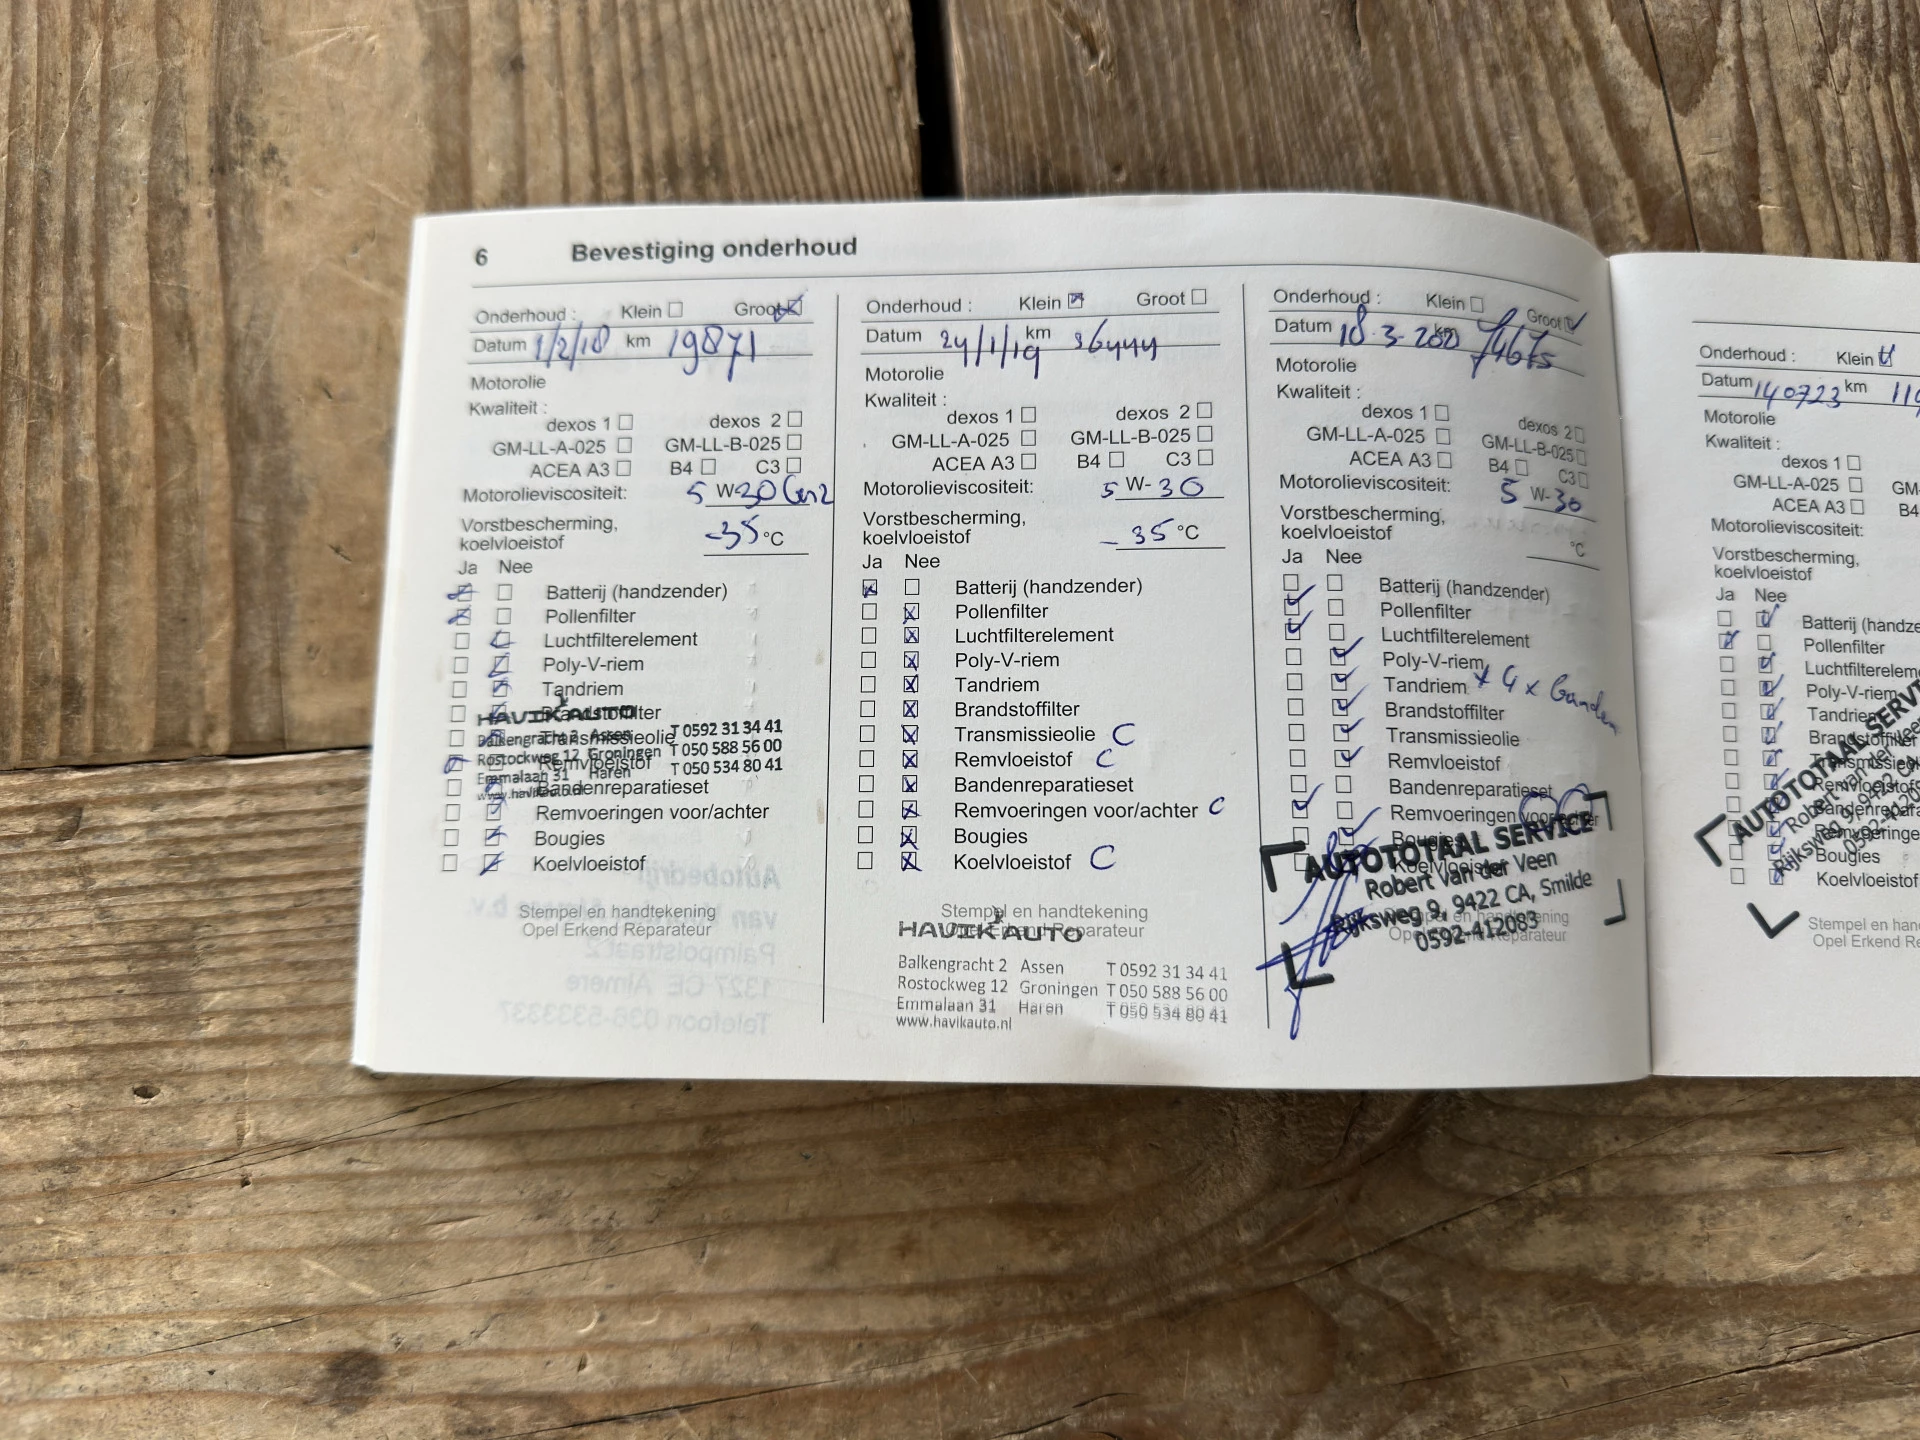 6 Bevestiging onderhoud
Onderhoud : Klein Groot
Datum 1/2/18 km 19871
Motorolie
Kwaliteit :
dexos 1 dexos 2
GM-LL-A-025 GM-LL-B-025
ACEA A3 B4 C3
Motorolieviscositeit: 5 W-30 Gen2
Vorstbescherming,
koelvloeistof -35 °C
Ja Nee
Batterij (handzender)
Pollenfilter
Luchtfilterelement
Poly-V-riem
Tandriem
Brandstoffilter
Transmissieolie
Remvloeistof
Bandenreparatieset
Remvoeringen voor/achter
Bougies
Koelvloeistof
HAVIK AUTO
Balkengracht 2 Assen T 0592 31 34 41
Rostockweg 12 Groningen T 050 588 56 00
Emmalaan 31 Haren T 050 534 80 41
www.havikauto.nl
Stempel en handtekening
Opel Erkend Reparateur
Onderhoud : Klein Groot
Datum 24/1/19 km 36444
Motorolie
Kwaliteit :
dexos 1 dexos 2
GM-LL-A-025 GM-LL-B-025
ACEA A3 B4 C3
Motorolieviscositeit: 5 W- 30
Vorstbescherming,
koelvloeistof - 35 °C
Ja Nee
Batterij (handzender)
Pollenfilter
Luchtfilterelement
Poly-V-riem
Tandriem
Brandstoffilter
Transmissieolie C
Remvloeistof C
Bandenreparatieset
Remvoeringen voor/achter C
Bougies
Koelvloeistof C
Stempel en handtekening
Opel Erkend Reparateur
HAVIK AUTO
Balkengracht 2 Assen T 0592 31 34 41
Rostockweg 12 Groningen T 050 588 56 00
Emmalaan 31 Haren T 050 534 80 41
www.havikauto.nl
Onderhoud : Klein Groot
Datum 18-3-200 km
Motorolie
Kwaliteit :
dexos 1 dexos 2
GM-LL-A-025 GM-LL-B-025
ACEA A3 B4 C3
Motorolieviscositeit: 5 W-30
Vorstbescherming,
koelvloeistof °C
Ja Nee
Batterij (handzender)
Pollenfilter
Luchtfilterelement
Poly-V-riem
Tandriem x 4 x banden
Brandstoffilter
Transmissieolie
Remvloeistof
Bandenreparatieset
Remvoeringen voor/achter
Bougies
Koelvloeistof
AUTOTOTAAL SERVICE
Robert van der Veen
Rijksweg 9, 9422 CA, Smilde
0592-412083
Stempel en handtekening
Opel Erkend Reparateur
Onderhoud : Klein
Datum 140723 km
Motorolie
Kwaliteit :
dexos 1
GM-LL-A-025 GM-
ACEA A3 B4
Motorolieviscositeit:
Vorstbescherming,
koelvloeistof
Ja Nee
Batterij (handze
Pollenfilter
Luchtfiltereleme
Poly-V-riem
Tandriem
Brandstoffilter
Transmissieo
Remvloeistof
Bandenrepara
Remvoeringe
Bougies
Koelvloeistof
AUTOTOTAAL SERV
Robert van der Veen
Rijksweg 9, 9422 CA
0592-4120
Stempel en han
Opel Erkend Re